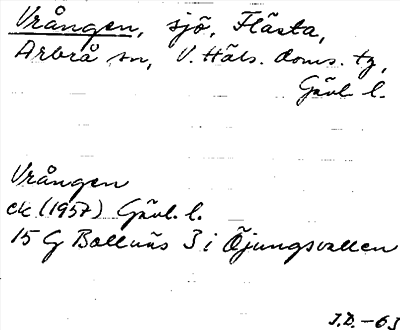 Vrången, sjö, Flästa,
Arbrå sn, V. Häls. doms. tg,
Gävl. l.
Vrången
ek (1957) Gävl. l.
15 G Bollnäs 3 i Öjungsvallen
J.D. -63